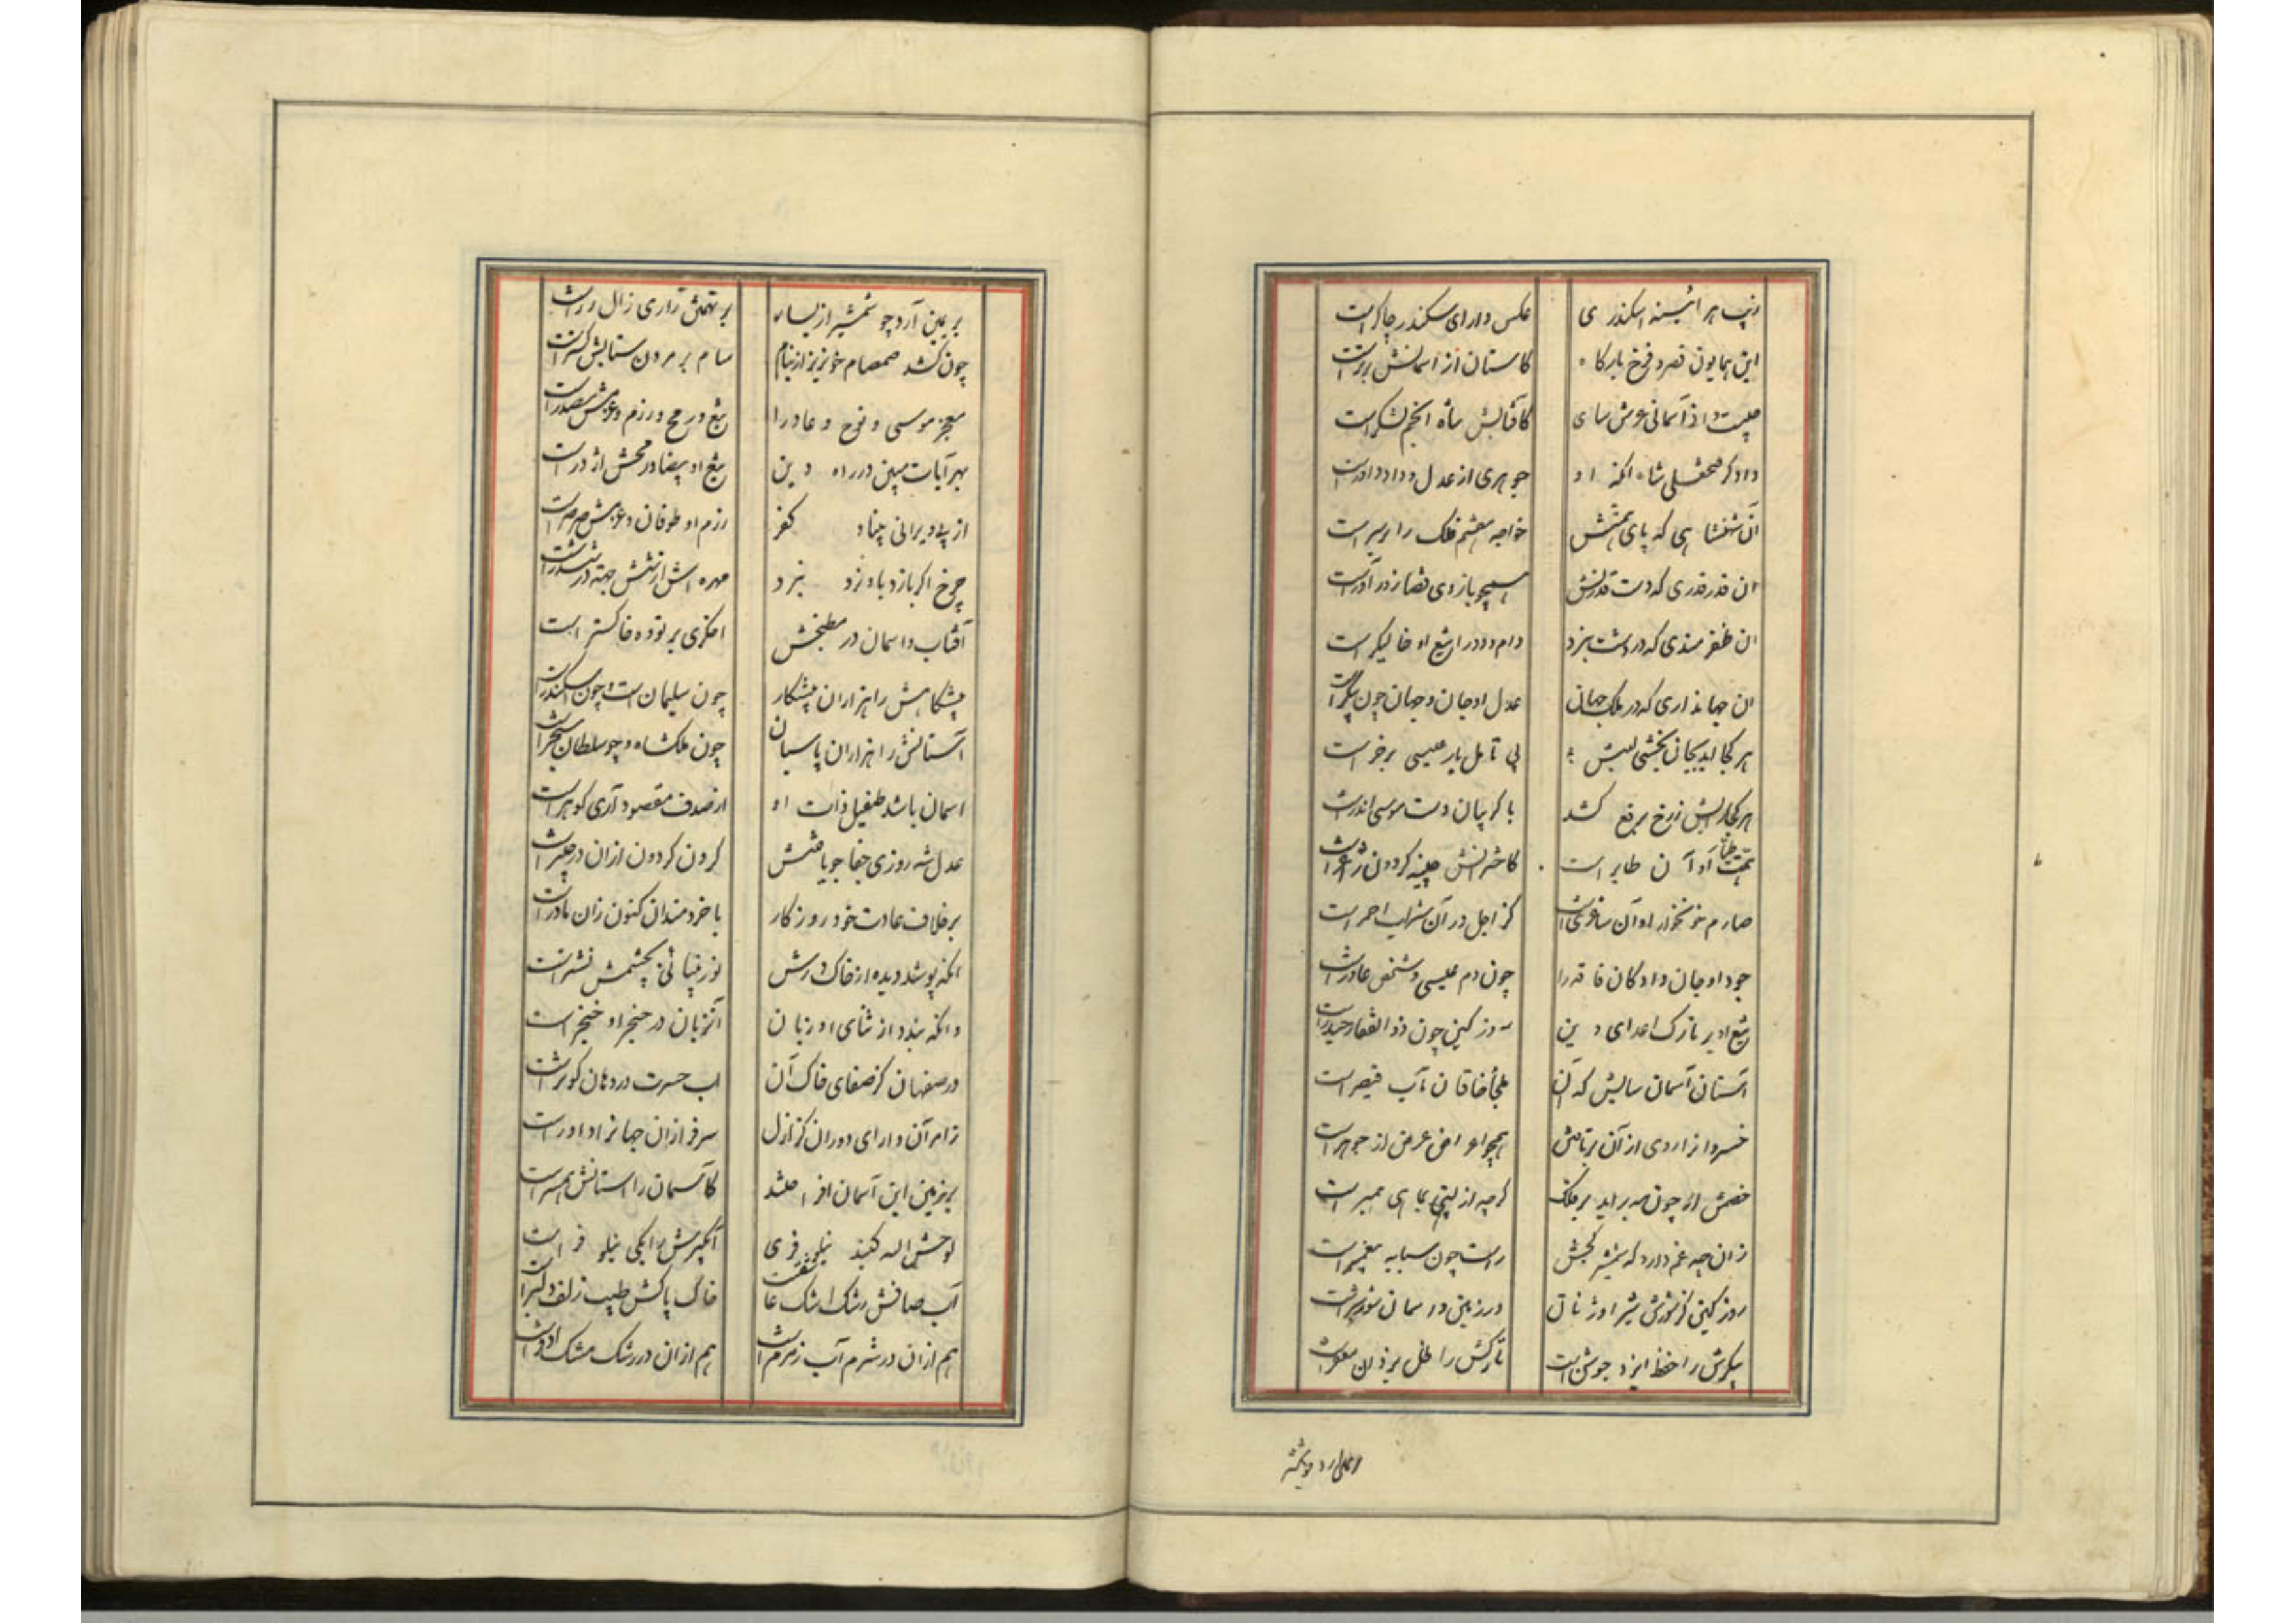 زیب هر آئینه اسکندری عکس دارای سکندر چاکر است
این همایون قصر و فرخ بارکاه کاستان از اسمانش برتر است
چیست دانی آسمانی عرش سای کافتابش شاه انجم لشکر است
دادکر فتحعلی شاه انکه او جوهری از عدل و داد داور است
آن شهنشاهی که پای همتش خواجه هفتم فلک را بر سر است
ان قدر قدری که دست قدرتش همچو بازوی قضا زور آور است
ان ظفرمندی که در دشت نبرد دام و دد را تیغ او خالیکر است
ان جهانداری که در ملک جهان عدل او جان و جهان چون پیکر است
هر کجا اید بجان بخشی لبش بی تامل بار عیسی بر خر است
هر کجا رایش ز رخ برقع کشد با کریبان دست موسی اندر است
همت او آن طایر است کاشیانش چینه کردون ژاغر است
صارم خونخوار او آن ساغری است کز اجل در آن شراب احمر است
جود او جان دادکان فاقه را چون دم عیسی و شخص عادر است
تیغ او بر تارک اعدای دین روز کین چون ذوالفقار حیدر است
آستان آسمان سایش که آن ملجأ خاقان مآب قیصر است
خسروانرا روی از آن برتافتن همچو اعراض عرض از جوهر است
خصمش ار چون مه براید بر فلک کرچه از پستی بماهی همبر است
زان چه غم دارد که شمشیر کجش راست چون سبابه پیغمبر است
روز کین کز شورش شیر اوژنان در زمین و اسمان شور و شر است
پیکرش را حفظ ایزد جوشن است تارکش را ظل یزدان مغفر است
بر یمین آرد چو شمشیر از یسار بر تهمتن زاری زال زر است
چون کشد صمصام خونریز از نیام سام بر مردن ستایش کستر است
معجز موسی و نوح و عاد را تیغ و رمح و رزم و عزمش مصدر است
بهر آیات مبین در راه دین تیغ او بیضا و رمحش اژدر است
از پی ویرانی بنیاد کفر رزم او طوفان و عزمش صرصر است
چرخ اکر بازد باو نرد نبرد مهره اش از شش جهة در ششدر است
آفتاب و اسمان در مطبخش اخکری بر توده خاکستر است
پیشکاهش را هزاران پیشکار چون سلیمان است و چون اسکندر است
آستانش را هزاران پاسبان چون ملکشاه و چو سلطان سنجر است
اسمان باشد طفیل ذات او از صدف مقصود آری کوهر است
عدل شه روزی جفا جو یافتش کردن کردون ازان در چنبر است
برخلاف عادت خود روزکار با خردمندان کنون زان مادر است
انکه پوشد دیده از خاک درش نور بینائی بچشمش نشتر است
وانکه بندد از ثنای او زبان آنزبان در حنجر او خنجر است
در صفهان کز صفای خاک آن اب حسرت در دهان کوثر است
ز امر آن دارای دوران کز ازل سرفرازان جهانرا داور است
بر زمین این آسمان افراختند کاسمان را استانش همسر است
لوحش الله کنبد نیلوفری آبکیرش را یکی نیلوفر است
آب صافش رشک اشک عاشقست خاک پاکش طیب زلف دلبر است
هم ازان در شرم آب زمزم است هم ازان در رشک مشک اذفر است